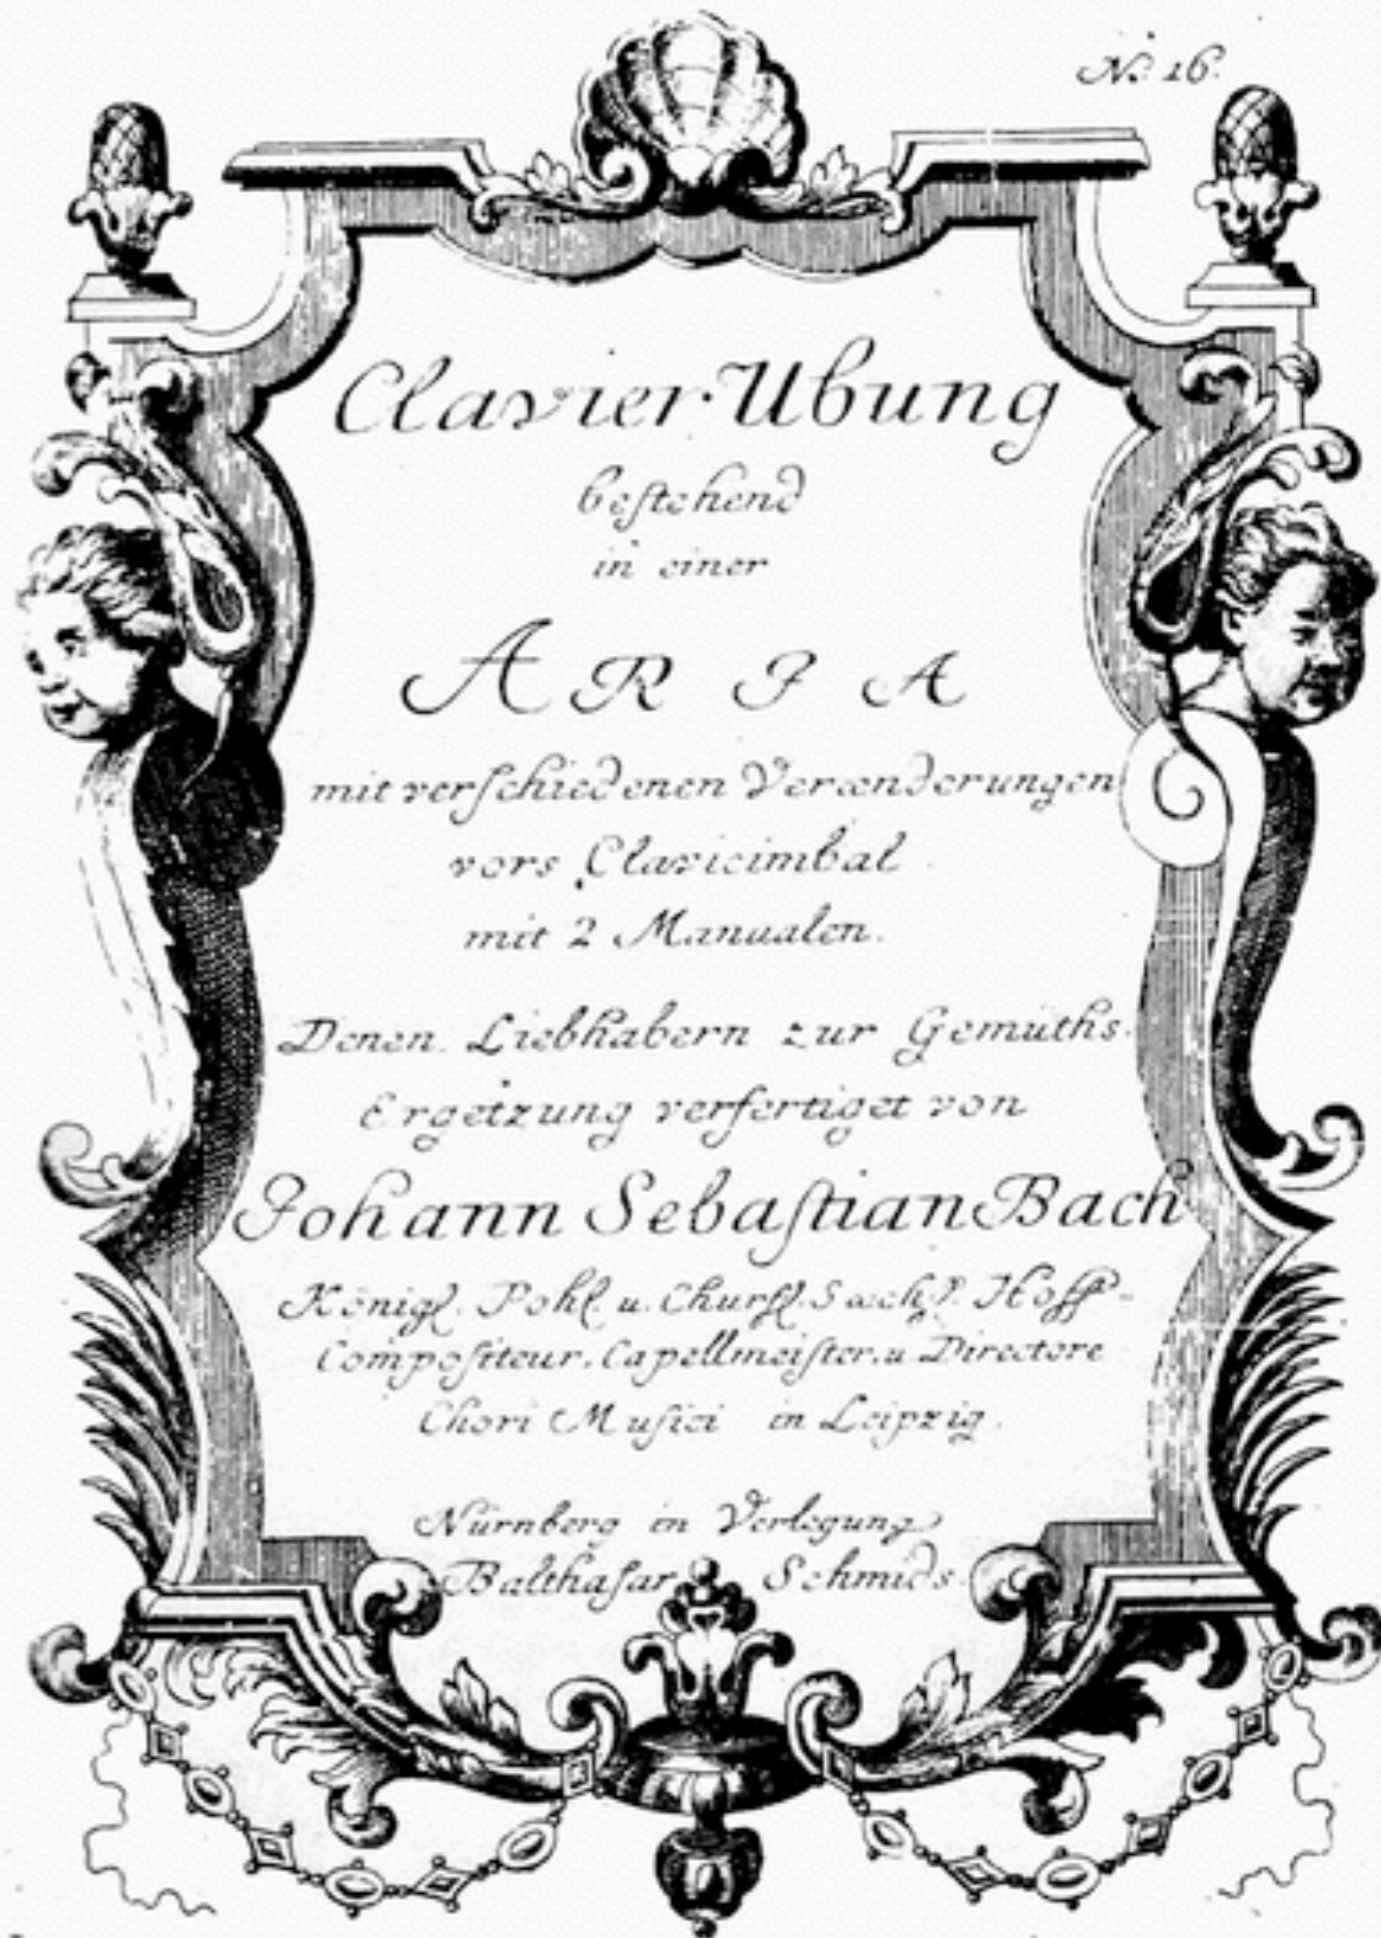 No. 16.
Clavier Ubung
bestehend
in einer
ARIA
mit verschiedenen Verænderungen
vors Clavicimbal
mit 2 Manualen.
Denen Liebhabern zur Gemüths-
Ergetzung verfertiget von
Johann Sebastian Bach
Königl. Pohl. u. Churfl. Sæchs. Hoff-
Compositeur, Capellmeister, u. Directore
Chori Musici in Leipzig.
Nürnberg in Verlegung
Balthasar Schmids.